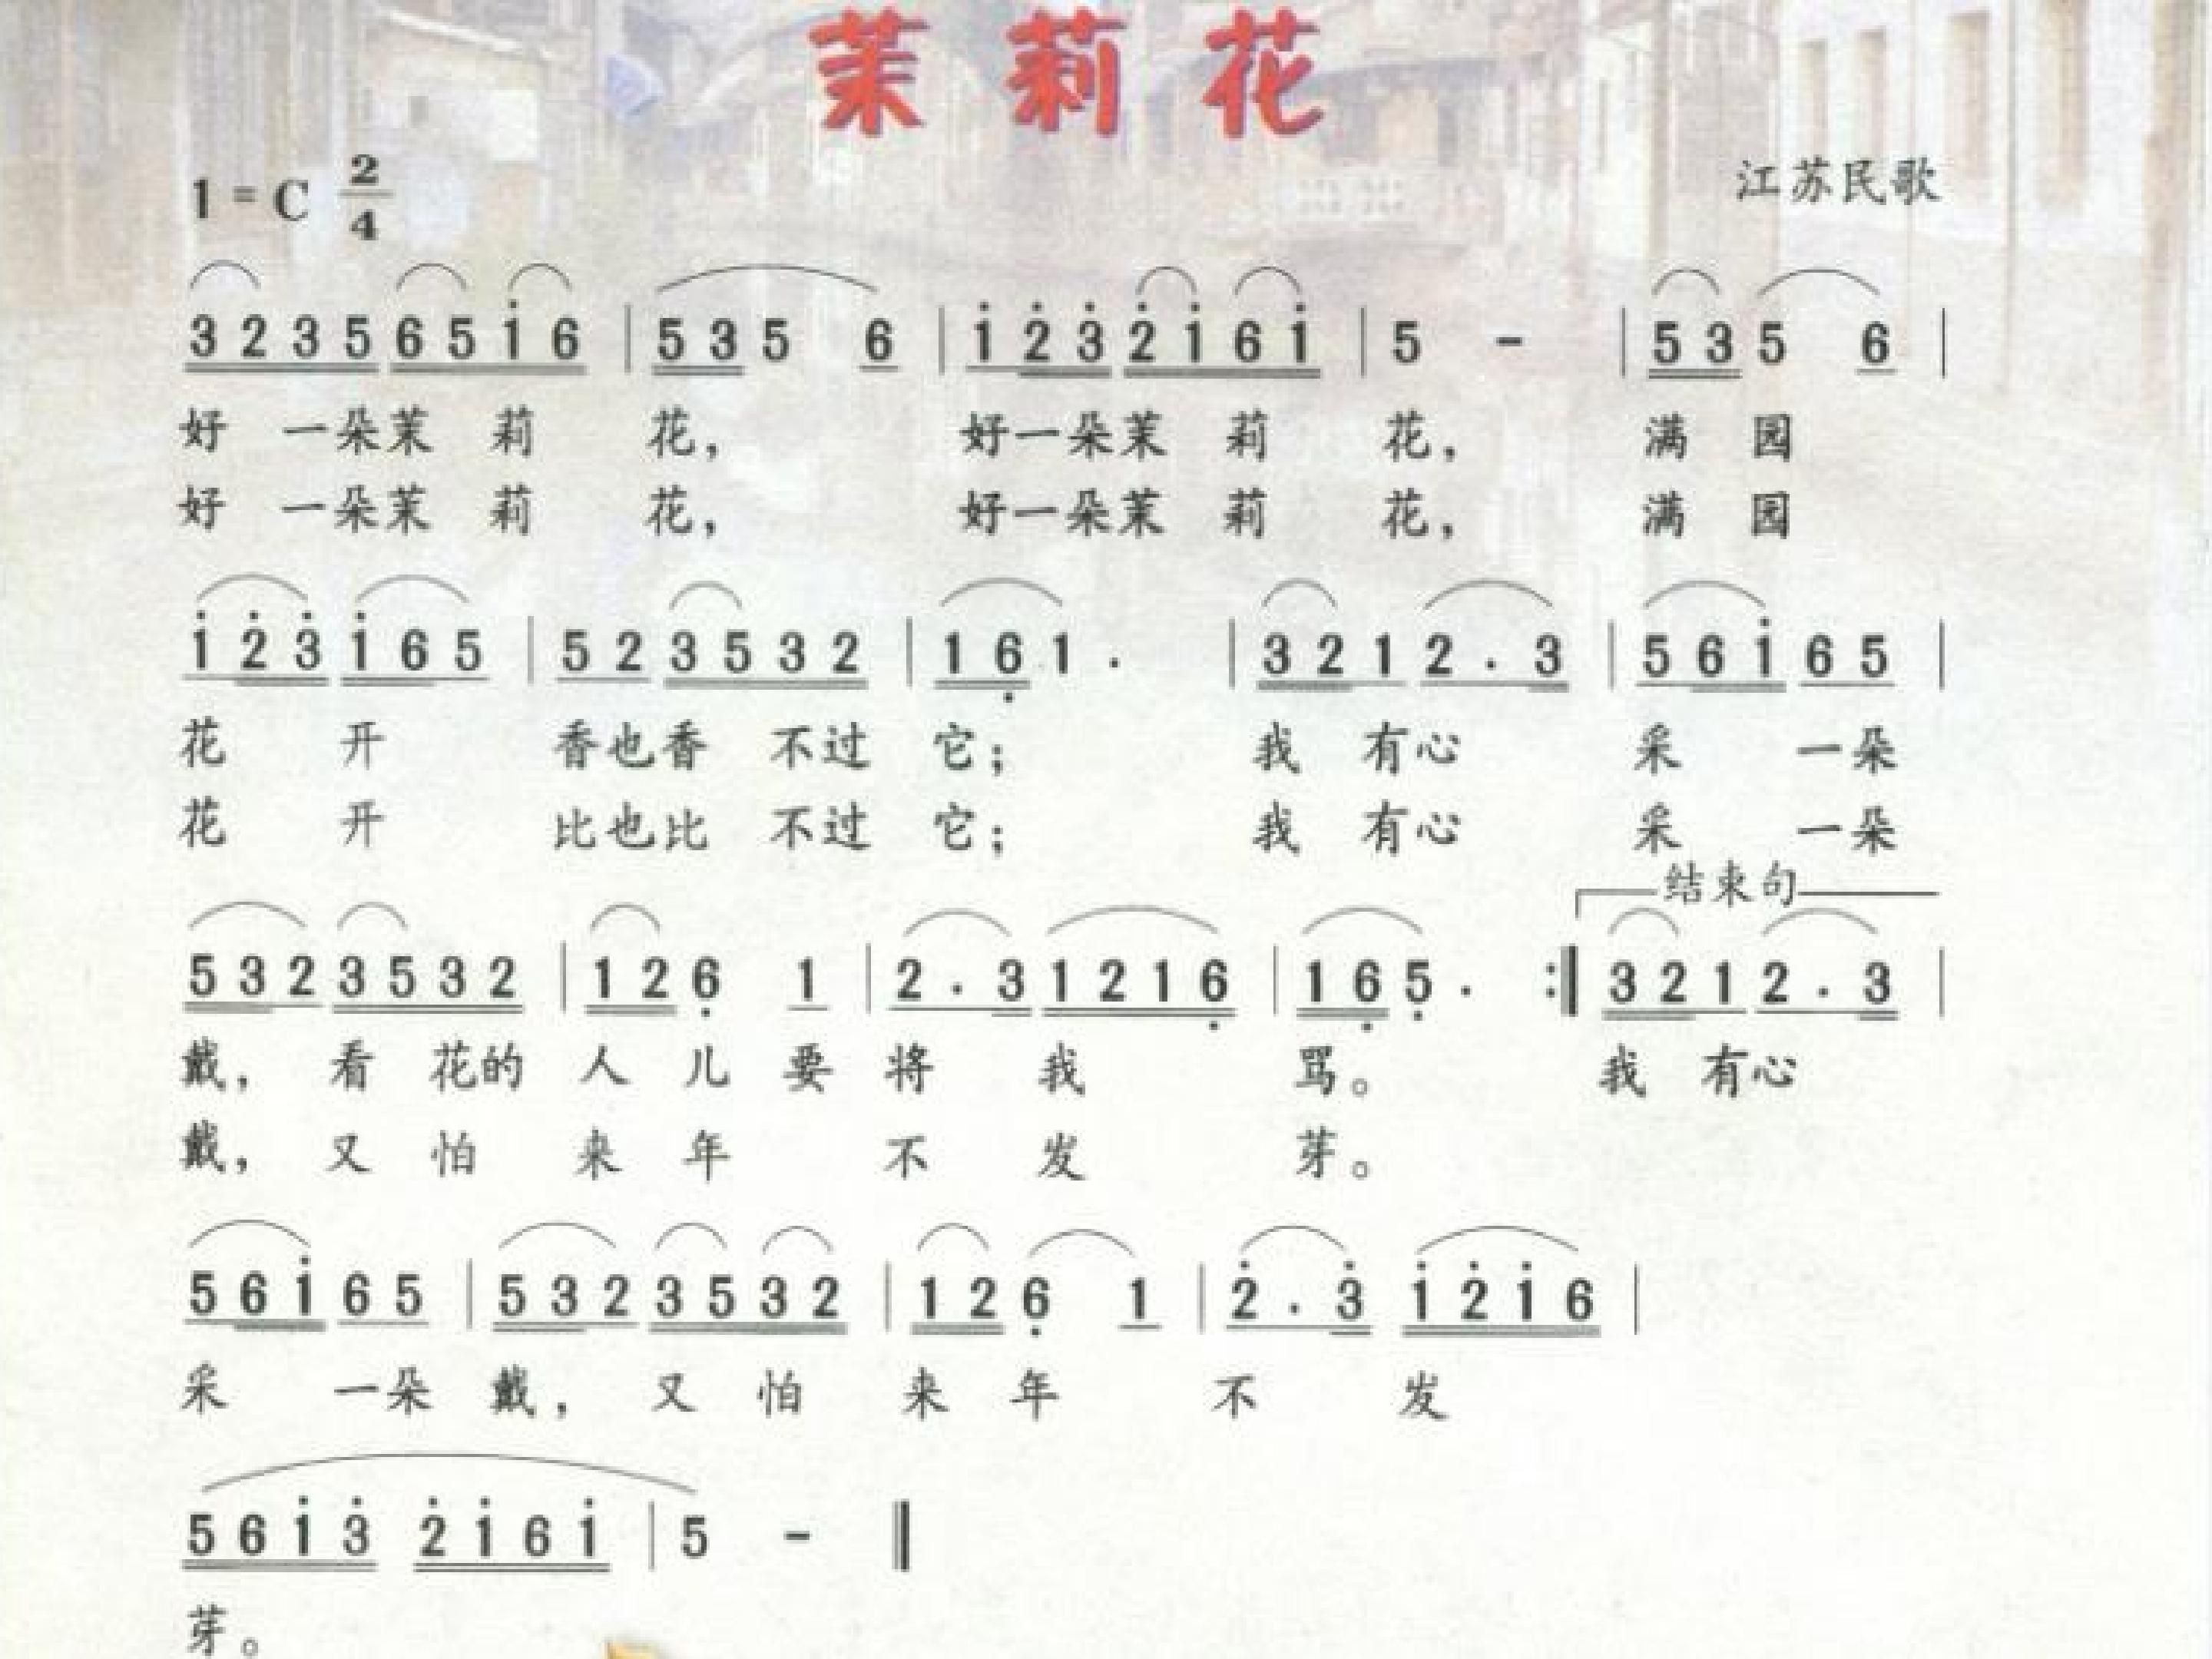 茉莉花
1=C 2/4
江苏民歌
3 2 3 5 6 5 i̇ 6 | 5 3 5 6 | i̇ 2̇ 3̇ 2̇ i̇ 6 i̇ | 5 - | 5 3 5 6 |
好 一朵茉 莉 花， 好一朵茉 莉 花， 满 园
好 一朵茉 莉 花， 好一朵茉 莉 花， 满 园
i̇ 2̇ 3̇ i̇ 6 5 | 5 2 3 5 3 2 | 1 6̣ 1 . | 3 2 1 2 . 3 | 5 6 i̇ 6 5 |
花 开 香也香 不过 它； 我 有心 采 一朵
花 开 比也比 不过 它； 我 有心 采 一朵
结束句
5 3 2 3 5 3 2 | 1 2 6̣ 1 | 2 . 3 1 2 1 6̣ | 1 6̣ 5̣ . :| 3 2 1 2 . 3 |
戴， 看 花的 人 儿 要 将 我 骂。 我 有心
戴， 又 怕 来 年 不 发 芽。
5 6 i̇ 6 5 | 5 3 2 3 5 3 2 | 1 2 6̣ 1 | 2̇ . 3̇ i̇ 2̇ i̇ 6 |
采 一朵 戴， 又 怕 来 年 不 发
5 6 i̇ 3̇ 2̇ i̇ 6 i̇ | 5 - ‖
芽。